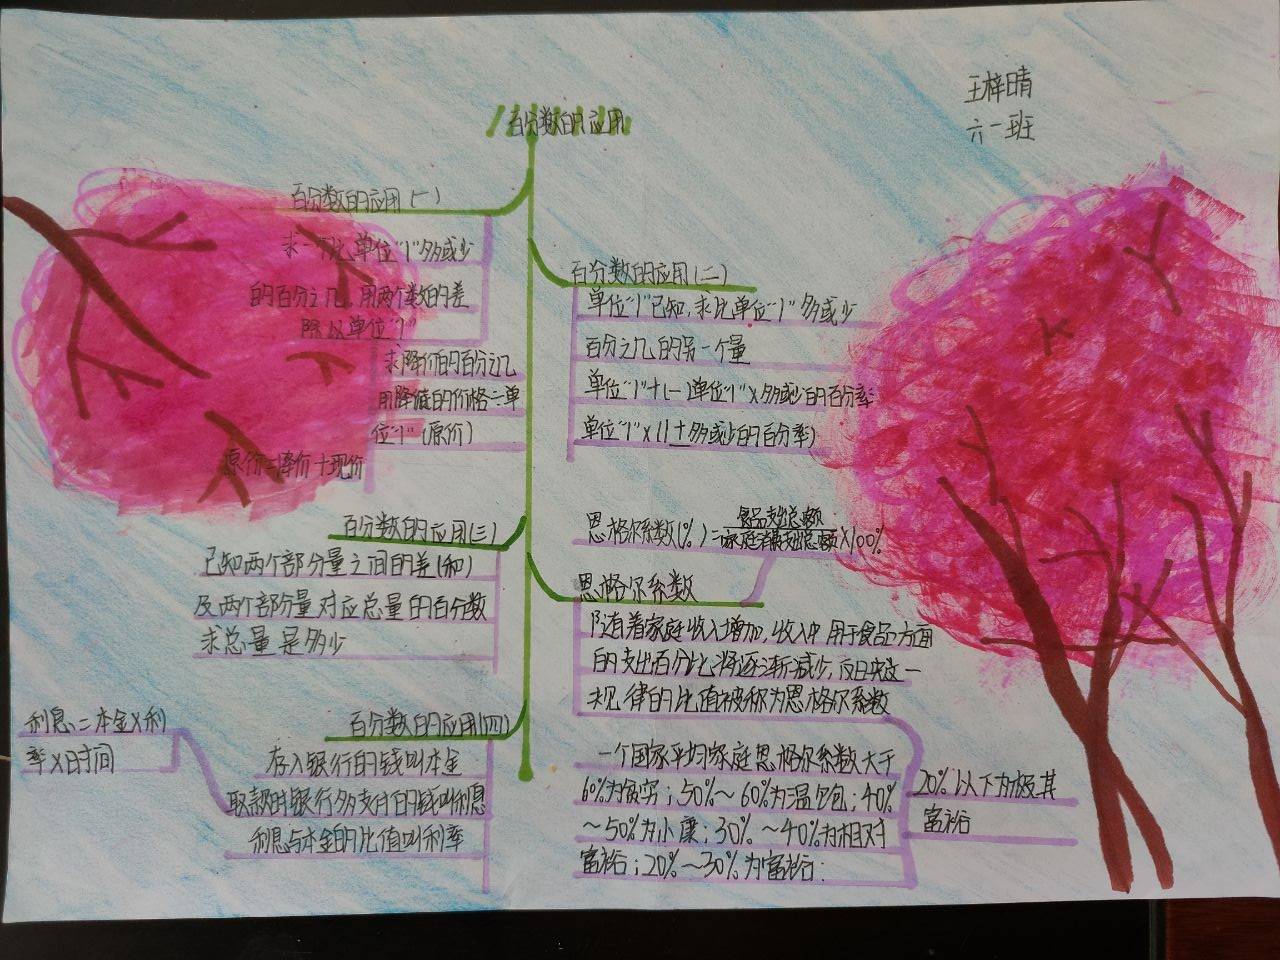 王梓晴
六一班
百分数的应用
百分数的应用(一)
求一个比单位"1"多或少
的百分之几,用两个数的差
除以单位"1"
求降价的百分之几
用降低的价格÷单
位"1"(原价)
原价=降价+现价
百分数的应用(二)
单位"1"已知,求比单位"1"多或少
百分之几的另一个量
单位"1"+(-)单位"1"×多或少的百分率
单位"1"×(1±多或少的百分率)
百分数的应用(三)
已知两个部分量之间的差(和)
及两个部分量对应总量的百分数
求总量是多少
恩格尔系数(%)=食品支出总额/家庭消费支出总额×100%
恩格尔系数
随着家庭收入增加,收入中用于食品方面
的支出百分比将逐渐减少,反映这一
规律的比值被称为恩格尔系数
一个国家平均家庭恩格尔系数大于
60%为贫穷;50%~60%为温饱;40%
~50%为小康;30%~40%为相对
富裕;20%~30%为富裕;
20%以下为极其
富裕
百分数的应用(四)
存入银行的钱叫本金
取款时银行多支付的钱叫利息
利息与本金的比值叫利率
利息=本金×利
率×时间